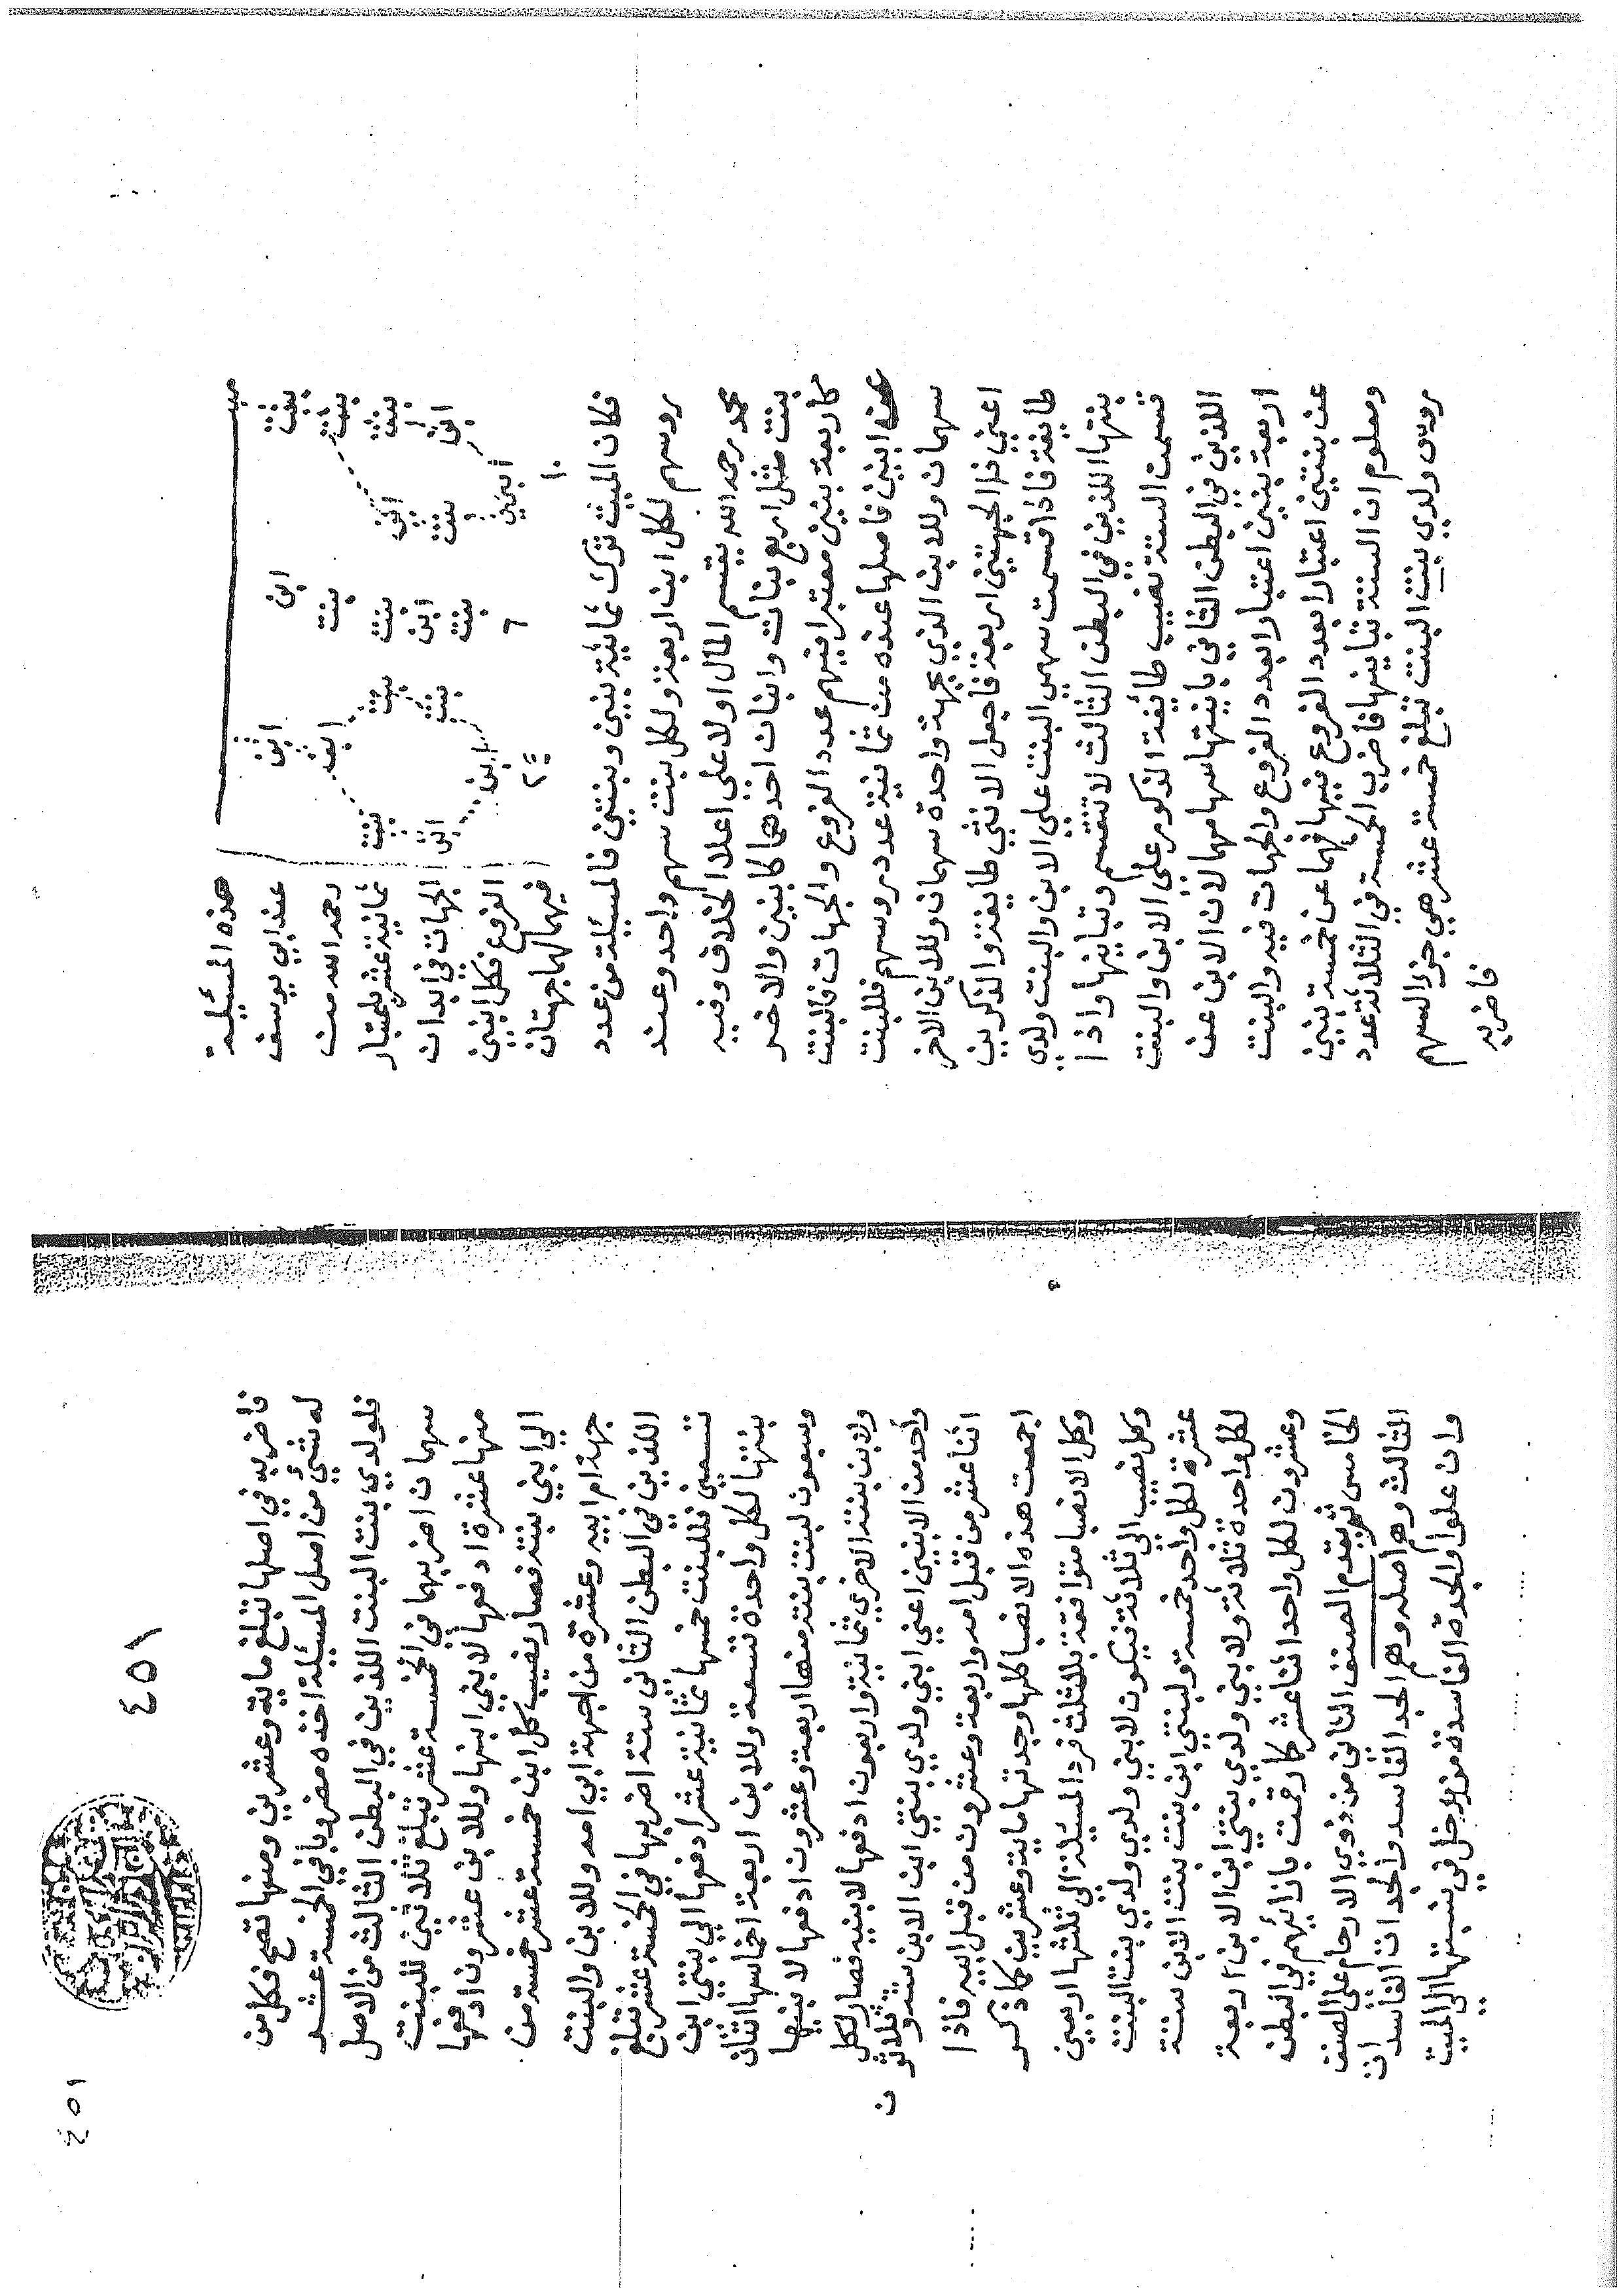 ميـ
هذه المسئلة
بنت ابن ابن
عند ابي يوسف
بنت بنت ابن
رحمه الله من
بنت ابن بنت بنت بنت
ثمانية عشر باعتبار
ابن بنت ابن بنت ابن
الجهات في ابدان
ابنين بنت ابن
الفروع فكل ابنين
١٠ ٦
فيهما لهما جهتان
فكان الميت ترك ثمانية بنين وبنتين فالمسئلة من عدد
روسهم لكل ابن اربعة ولكل بنت سهم واحد وعند
محمد رحمه الله يقسم المال اولا على اعلا الخلاف وفيه
بنت مثل اربع بنات وابنان احدهما كابنين والاخر
كاربعة بنين معتبرا فيهم عدد الفروع والجهات فالبنت
عن ابنين فاصلها عنده من ثمانية عدد روسهم فللبنت
سهمان وللابن الذي بجهة واحدة سهمان وللابن الاخر
اعني ذا الجهتين اربعة فاجعل الانثى طايفة والذكرين
طايفة فاذا قسمت سهمي البنت على الابن والبنت ولدي
بنتها اللذين في البطن الثالث لا تنقسم وتباينها واذا
قسمت الستة نصيب طائفة الذكور على الابن والبنت
اللذين في البطن الثاني باينتها سهامهما لان الابن عن
اربعة بنين اعتبارا بعدد الفروع والجهات فيه والبنت
عن بنتين اعتبارا بعدد الفروع فيها فهما عن خمسة بنين
ومعلوم ان الستة تباينها فاضرب الخمسة في الثلاثة عدد
روس ولدي بنت البنت تبلغ خمسة عشر هي جزء السهم
فاضربه
٤٥١
٤٥١
فاضربه في اصلها تبلغ ماية وعشرين ومنها تصح فكل من
له شيء من اصل المسئلة اخذه مضروبا في الخمسة عشر
فلولدي بنت البنت اللذين في البطن الثالث من الاصل
سهمان اضربهما في الخمسة عشر تبلغ ثلاثين للبنت
منها عشرة ادفعها لابني ابنها وللابن عشرون ادفعها
الي ابني بنته فصار نصيب كل ابن خمسة عشر خمسة من
جهة ام ابيه وعشرة من جهة ابي امه وللابن والبنت
اللذين في البطن الثاني ستة اضربها في الخمسة عشر تبلغ
تسعين فللبنت خمسها ثمانية عشر ادفعها الي بنتي ابن
بنتها لكل واحدة تسعة وللابن اربعة اخماسها اثنان
وسبعون لبنت بنته منها اربعة وعشرون ادفعها لابنيها
ولابن بنته الاخري ثمانية واربعون ادفعها لابنيه فصار لكل
واحد من الابنين اعني ابني ولدي بنتي ابن الابن ستة وثلاثون
اثنا عشر من قبل امه واربعة وعشرون من قبل ابيه فاذا
اجمعت هذه الانصبا كلها وجدتها ماية وعشرين كما ذكر
وكل الانصبا متوافقة بالثلث فرد المسئلة الي ثلثها اربعين
وكل نصيب الي ثلاثة فيكون لابني ولدي ولدي بنت البنت
عشرة لكل واحد خمسة ولبنتي ابن بنت بنت الابن ستة
لكل واحدة ثلاثة ولابني ولدي بنتي ابن الابن اربعة
وعشرون لكل واحد اثنا عشر كما رقمت بازائهم في البطن
الخامس ثم يقدم الصنف الثاني من ذوي الارحام على الصنف
الثالث وهم اصله وهم الجد الفاسد والجدات الفاسدات
وان علوا والجدة الفاسدة من دخل في نسبتها الي الميت